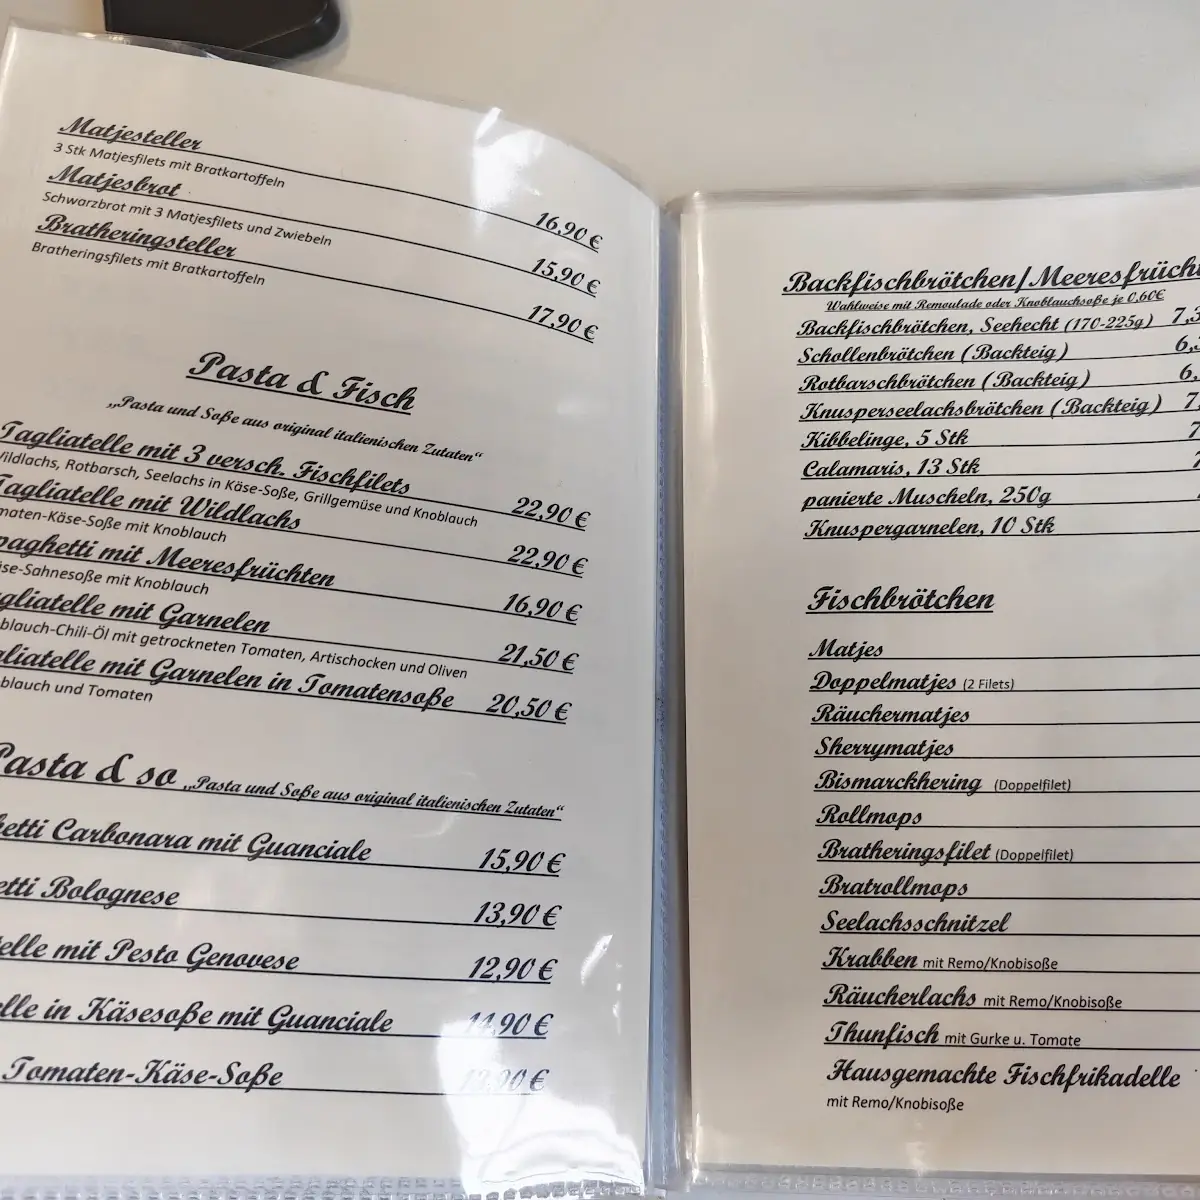 Matjesteller
3 Stk Matjesfilets mit Bratkartoffeln
16,90 €
Matjesbrot
Schwarzbrot mit 3 Matjesfilets und Zwiebeln
15,90 €
Bratheringsteller
Bratheringsfilets mit Bratkartoffeln
17,90 €
Pasta & Fisch
„Pasta und Soße aus original italienischen Zutaten“
Tagliatelle mit 3 versch. Fischfilets 22,90 €
Wildlachs, Rotbarsch, Seelachs in Käse-Soße, Grillgemüse und Knoblauch
Tagliatelle mit Wildlachs 22,90 €
maten-Käse-Soße mit Knoblauch
paghetti mit Meeresfrüchten 16,90 €
se-Sahnesoße mit Knoblauch
gliatelle mit Garnelen 21,50 €
blauch-Chili-Öl mit getrockneten Tomaten, Artischocken und Oliven
gliatelle mit Garnelen in Tomatensoße 20,50 €
blauch und Tomaten
Pasta & so „Pasta und Soße aus original italienischen Zutaten“
etti Carbonara mit Guanciale 15,90 €
etti Bolognese 13,90 €
telle mit Pesto Genovese 12,90 €
elle in Käsesoße mit Guanciale 14,90 €
Tomaten-Käse-Soße
Backfischbrötchen/Meeresfrücht
Wahlweise mit Remoulade oder Knoblauchsoße je 0,60€
Backfischbrötchen, Seehecht (170-225g) 7,3
Schollenbrötchen (Backteig) 6,
Rotbarschbrötchen (Backteig) 6,
Knusperseelachsbrötchen (Backteig) 7,
Kibbelinge, 5 Stk 7
Calamaris, 13 Stk
panierte Muscheln, 250g
Knuspergarnelen, 10 Stk
Fischbrötchen
Matjes
Doppelmatjes (2 Filets)
Räuchermatjes
Sherrymatjes
Bismarckhering (Doppelfilet)
Rollmops
Bratheringsfilet (Doppelfilet)
Bratrollmops
Seelachsschnitzel
Krabben mit Remo/Knobisoße
Räucherlachs mit Remo/Knobisoße
Thunfisch mit Gurke u. Tomate
Hausgemachte Fischfrikadelle
mit Remo/Knobisoße